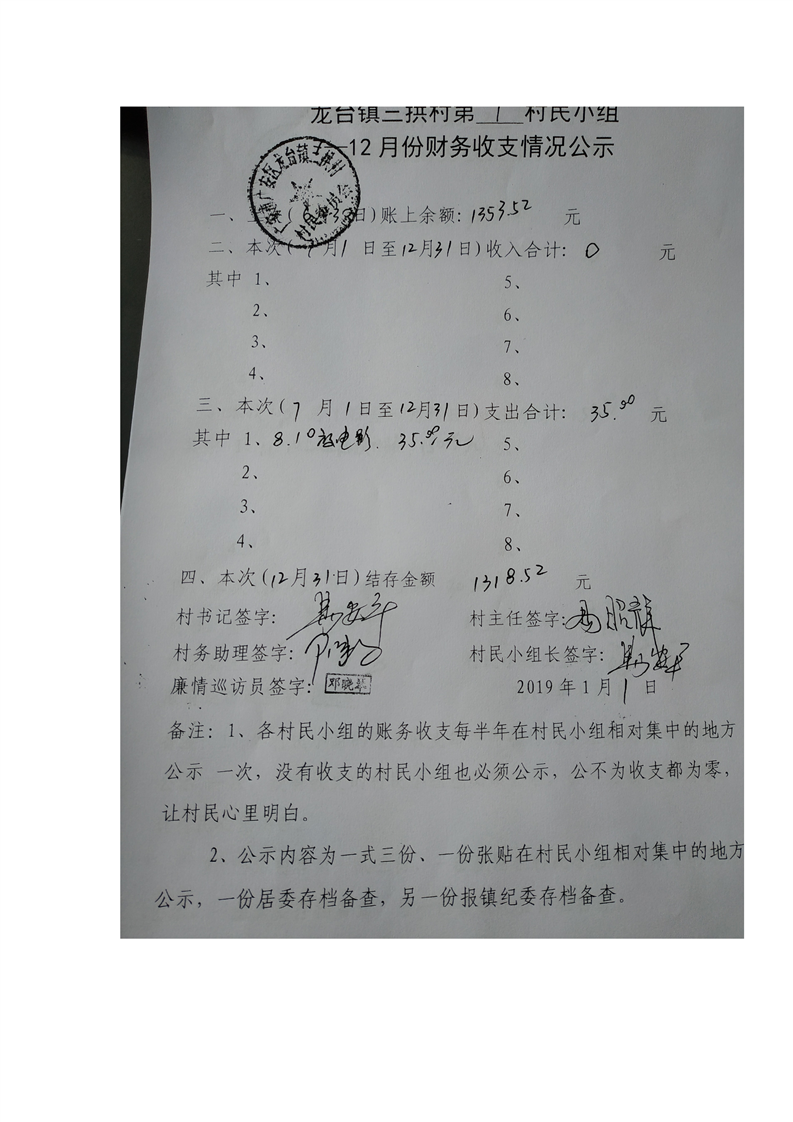 龙台镇三拱村第 1 村民小组
12月份财务收支情况公示
一、 日)账上余额: 1353.52 元
二、本次( 7 月1 日至12月31日)收入合计: 0 元
其中 1、 5、
2、 6、
3、 7、
4、 8、
三、本次( 7 月 1 日至12月31日)支出合计: 35.00 元
其中 1、8.10放电影. 35.00元 5、
2、 6、
3、 7、
4、 8、
四、本次(12月31日)结存金额 1318.52 元
村书记签字: 村主任签字:
村务助理签字: 村民小组长签字:
廉情巡访员签字: 2019年1月 1 日
备注: 1、各村民小组的账务收支每半年在村民小组相对集中的地方
公示 一次,没有收支的村民小组也必须公示,公不为收支都为零,
让村民心里明白。
2、公示内容为一式三份、一份张贴在村民小组相对集中的地方
公示,一份居委存档备查,另一份报镇纪委存档备查。